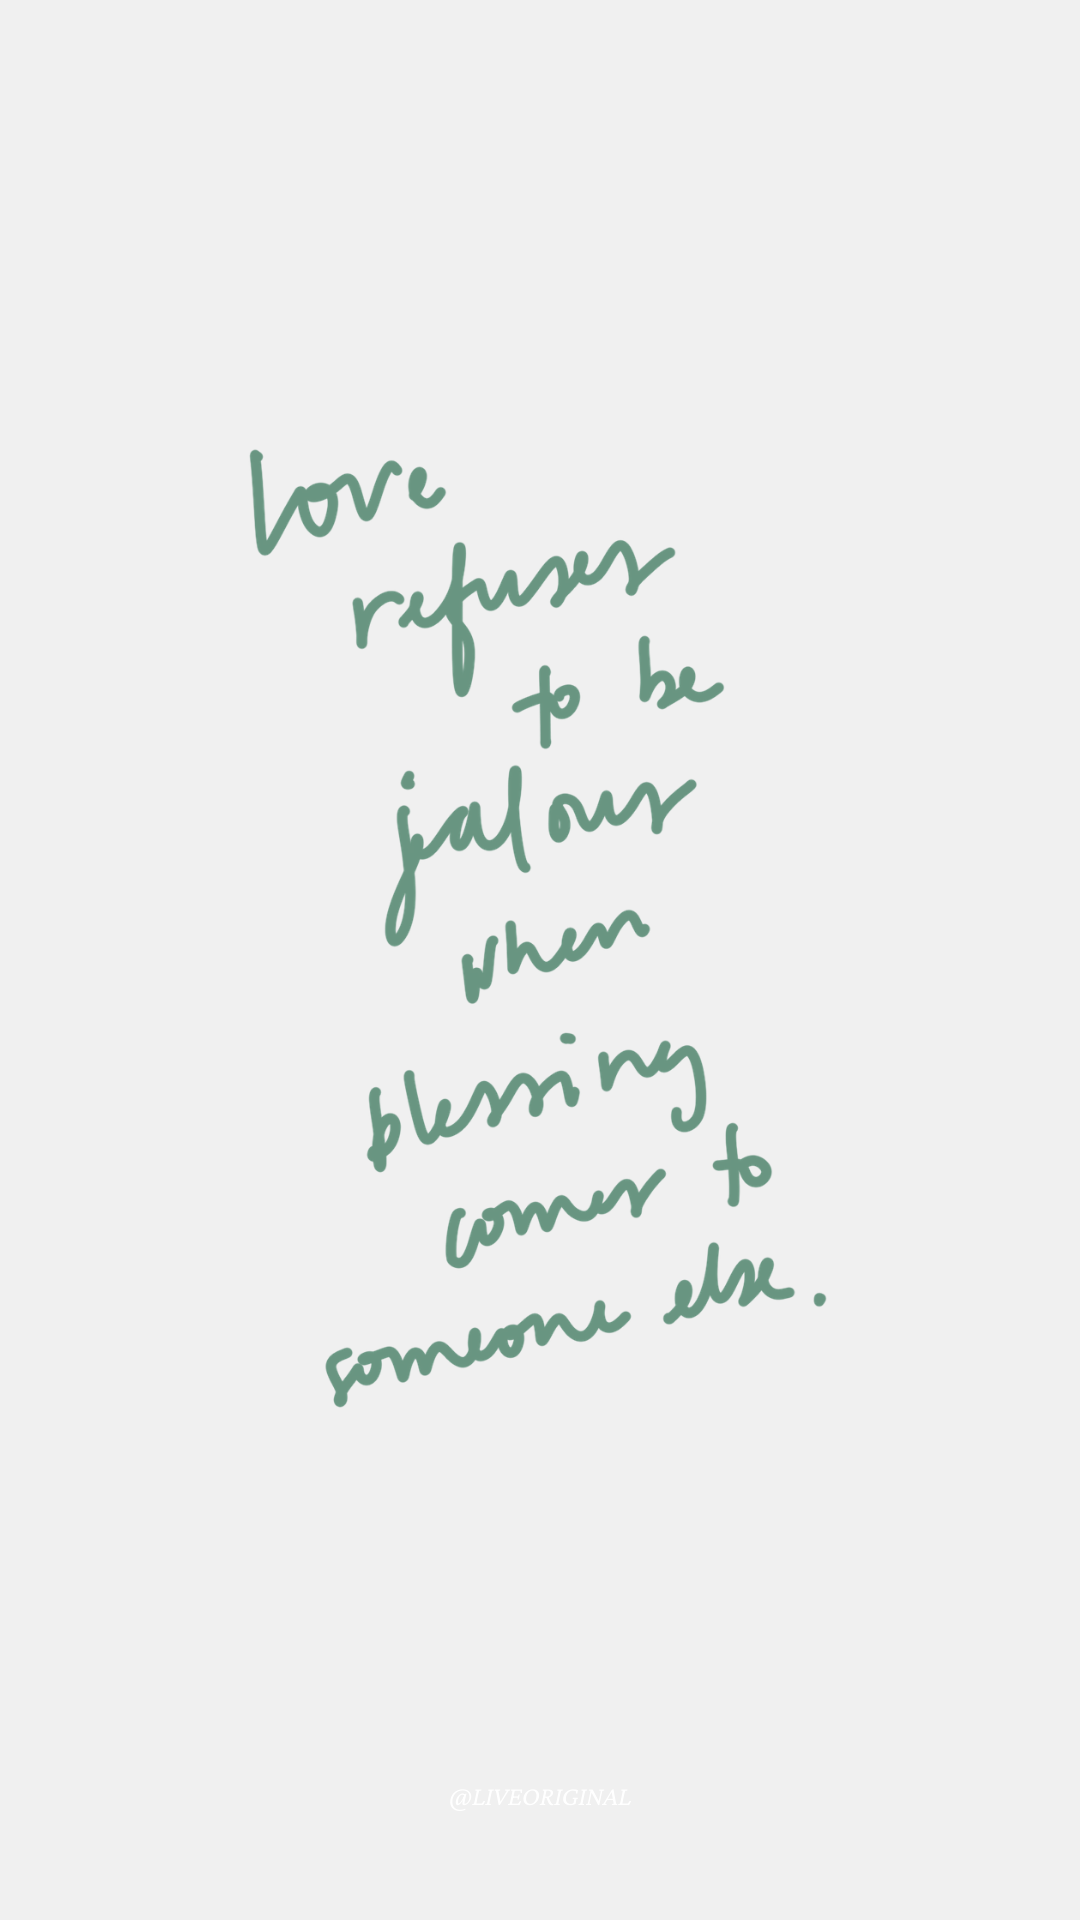 love
refuses
to be
jealous
when
blessing
comes to
someone else.
@LIVEORIGINAL